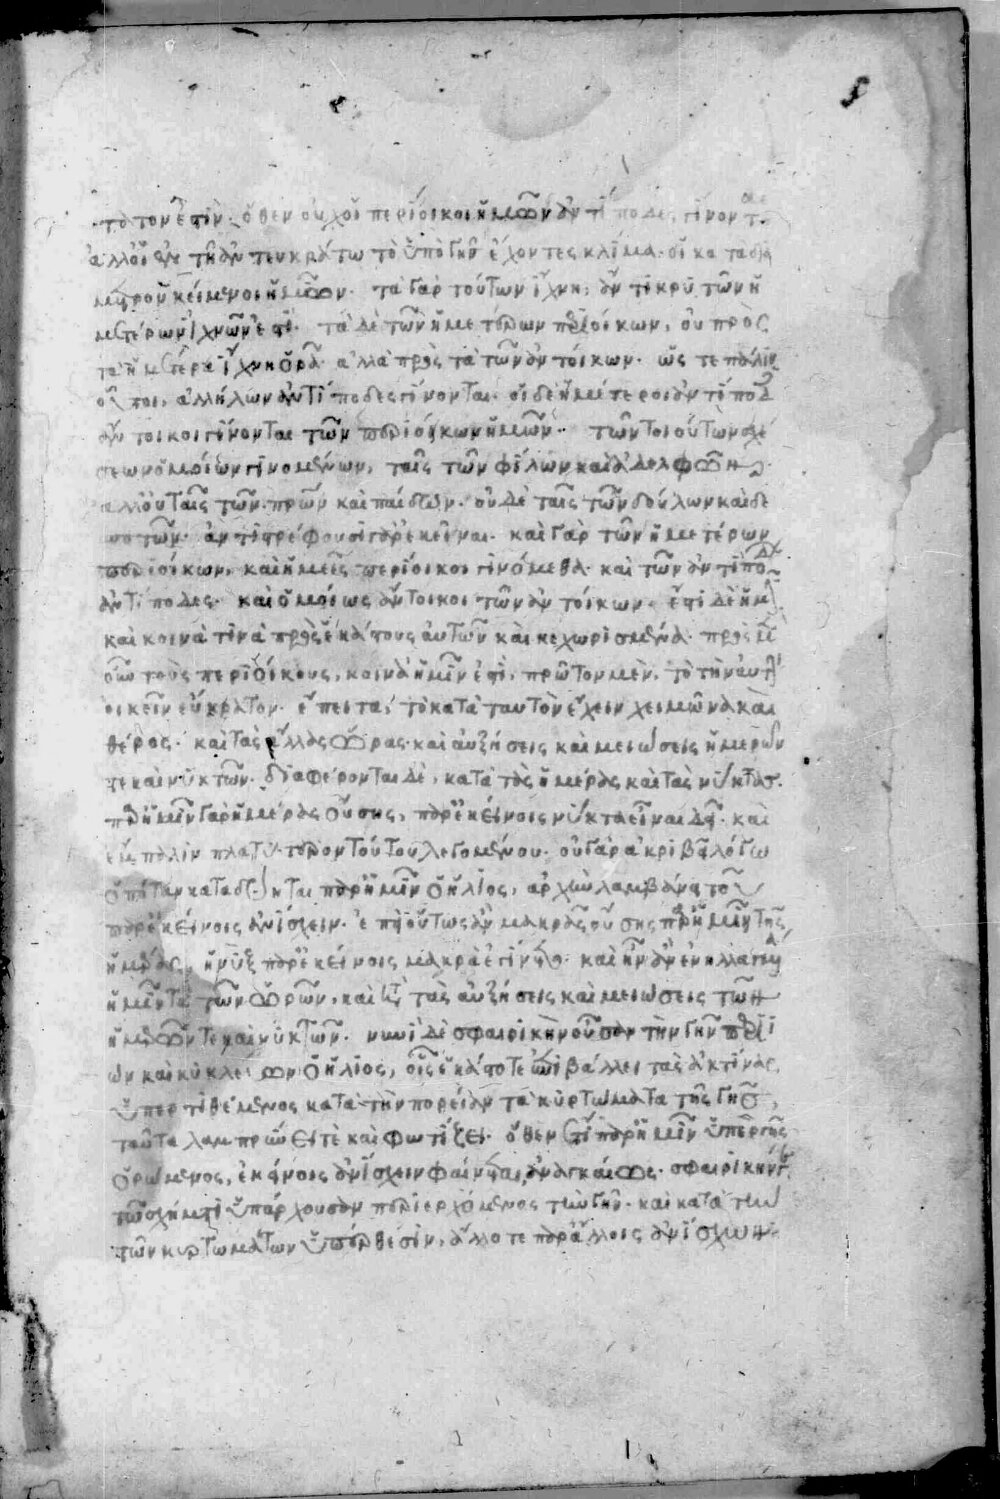 τατόν ἐστιν· ὅθεν οὐχ οἱ περίοικοι ἡμῶν ἀντίποδες γίνονται·
ἀλλ' οἱ ἐν τῇ ἀντευκράτω τὸ ὑπὸ γῆν ἔχοντες κλίμα· οἳ κατὰ διά
μετρον κείμενοι ἡμῶν· τὰ γὰρ τούτων ἴχνη, ἀντικρὺ τῶν ἡ
μετέρων ἰχνῶν ἐστί· τὰ δὲ τῶν ἡμετέρων περιοίκων, οὐ πρὸς
τὰ ἡμέτερα ἴχνη ὁρᾶ· ἀλλὰ πρὸς τὰ τῶν ἀντοίκων· ὥς τε πάλιν
οὗτοι, ἀλλήλων ἀντίποδες γίνονται· οἱ δὲ ἡμέτεροι ἀντίποδες
ἄντοικοι γίνονται τῶν περιοίκων ἡμῶν· τῶν τοιούτων σχέ
σεων ὁμοίων γινομένων, ταῖς τῶν φίλων καὶ ἀδελφῶν·
ἀλλ' οὐ ταῖς τῶν πρων καὶ παίδων· οὐδὲ ταῖς τῶν δούλων καὶ δε
σποτῶν· ἀντιστρέφουσι γὰρ ἐκεῖναι· καὶ γὰρ τῶν ἡμετέρων
περιοίκων, καὶ ἡμεῖς περίοικοι γινόμεθα· καὶ τῶν ἀντιπόδων
ἀντίποδες· καὶ ὁμοίως ἄντοικοι τῶν ἀντοίκων· ἐστὶ δὲ ἡμῖν
καὶ κοινά τινα πρὸς ἑκάστους αὐτῶν καὶ κεχωρισμένα· πρὸς μὲν
οὖν τοὺς περιοίκους, κοινὰ ἡμῖν ἐστι, πρῶτον μὲν, τὸ τὴν αὐτὴν
οἰκεῖν εὔκρατον· ἔπειτα, τὸ κατὰ ταυτὸν ἔχειν χειμῶνα καὶ
θέρος· καὶ τὰς ἄλλας ὥρας· καὶ αὐξήσεις καὶ μειώσεις ἡμερῶν
τε καὶ νυκτῶν· διαφέρονται δὲ, κατὰ τὰς ἡμέρας καὶ τὰς νύκτας·
παρ' ἡμῖν γὰρ ἡμέρας οὔσης, παρ' ἐκείνοις νύκτα εἶναι δεῖ· καὶ
ἔμπαλιν πλατύτερον τούτου λεγομένου· οὐ γὰρ ἀκριβεῖ λόγω
ὁπόταν καταδύηται παρ' ἡμῖν ὁ ἥλιος, ἀρχὴν λαμβάνει τοῦ
παρ' ἐκείνοις ἀνίσχειν· ἐπεὶ οὕτως ἂν μακρᾶς οὔσης παρ' ἡμῖν τῆς
ἡμέρας, ἡ νὺξ παρ' ἐκείνοις μακρὰ ἐγίνετο· καὶ ἦν ἂν ἐνηλλαγμένα
ἡμῖν τὰ τῶν ὡρῶν, καὶ κατὰ τὰς αὐξήσεις καὶ μειώσεις τῶν
ἡμερῶν τε καὶ νυκτῶν· νυνὶ δὲ σφαιρικὴν οὖσαν τὴν γῆν περιϊ
ὼν καὶ κυκλεύων ὁ ἥλιος, οἷς ἑκάστοτε ἐπιβάλλει τὰς ἀκτῖνας,
ὑπερτιθέμενος κατὰ τὴν πορείαν τὰ κυρτώματα τῆς γῆς,
ταῦτα λαμπρύνει τὲ καὶ φωτίζει· ὅθεν ἔτι παρ' ἡμῖν ὑπὲρ γῆς
ὁρώμενος, ἐκείνοις ἀνίσχειν φαίνεται, ἀναγκαίως· σφαιρικὴν
τῶ σχήματι ὑπάρχουσαν περιερχόμενος τὴν γῆν· καὶ κατὰ τὴν
τῶν κυρτωμάτων ὑπέρθεσιν, ἄλλοτε παρ' ἄλλοις ἀνίσχων·